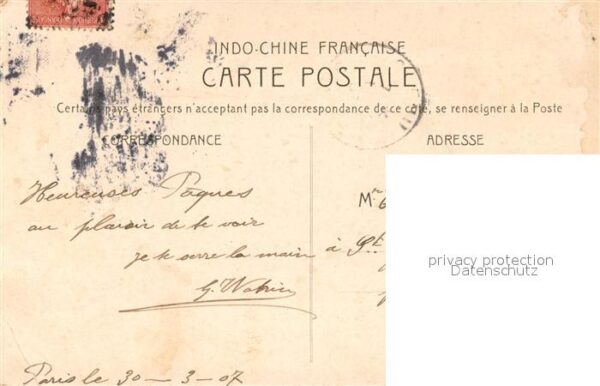 INDO-CHINE FRANÇAISE
CARTE POSTALE
Certains pays étrangers n'acceptant pas la correspondance de ce côté, se renseigner à la Poste
CORRESPONDANCE
ADRESSE
Heureuses Pâques
au plaisir de te voir
je te serre la main
Paris le 30 - 3 - 07
M
à St
privacy protection
Datenschutz